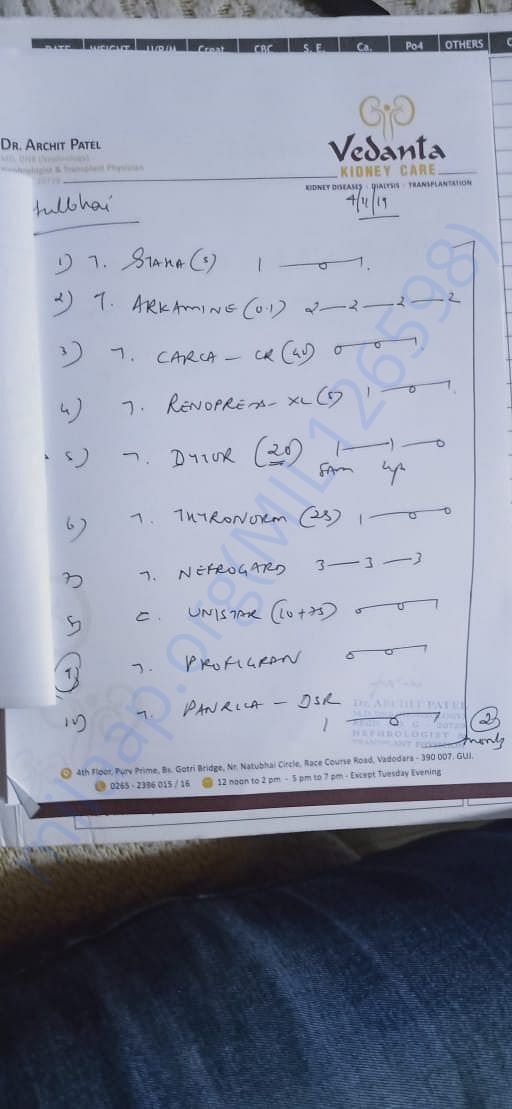 DATE WEIGHT U/P/M Creat CBC S. E. Ca. Po4 OTHERS
DR. ARCHIT PATEL
MD, DNB (Nephrology)
Nephrologist & Transplant Physician
Vedanta
KIDNEY CARE
KIDNEY DISEASES · DIALYSIS · TRANSPLANTATION
tulbhai
4/11/19
1) T. STAMA (5) 1 — 0 — 1
2) T. ARKAMINE (0.1) 2 — 2 — 2 — 2
3) T. CARCA - CR (40) 0 — 0 — 1
4) T. RENOPRESS - XL (5) 1 — 0 — 1
5) T. DYTOR (20) 1 — 1 — 0
8am 4pm
6) T. THYRONORM (25) 1 — 0 — 0
7) T. NEFROGARD 3 — 3 — 3
8) C. UNISTAR (10+75) 0 — 0 — 1
9) T. PROFIGRAN 0 — 0 — 1
10) T. PAN DSR 1 — 0 — 1
DR. ARCHIT PATEL
NEPHROLOGIST &
TRANSPLANT PHYSICIAN
2
months
4th Floor, Purv Prime, Bs. Gotri Bridge, Nr. Natubhai Circle, Race Course Road, Vadodara - 390 007. GUJ.
0265 - 2396 015 / 16 12 noon to 2 pm - 5 pm to 7 pm - Except Tuesday Evening
mjhap.org(MIL126598)